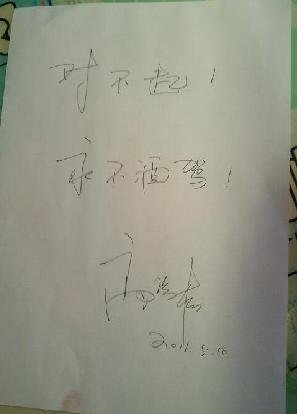 对不起!
永不酒驾!
高
2011.5.10